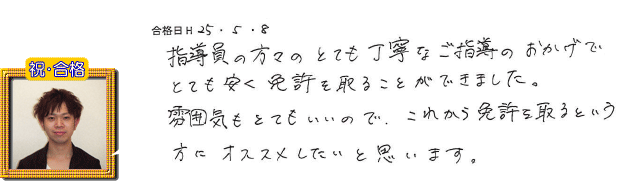 合格日H 25・5・8
祝・合格
指導員の方々のとても丁寧なご指導のおかげで
とても安く免許を取ることができました。
雰囲気もとてもいいので、これから免許を取るという
方にオススメしたいと思います。